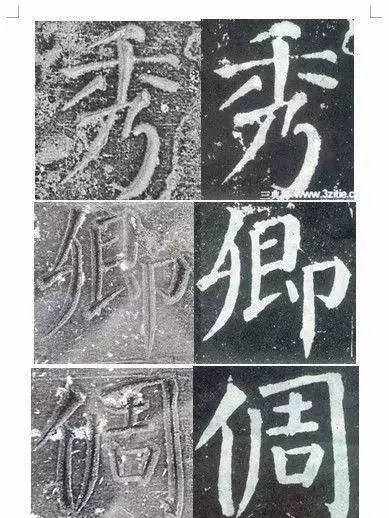 秀 秀
www.3zitie.c
卿 卿
倜 倜